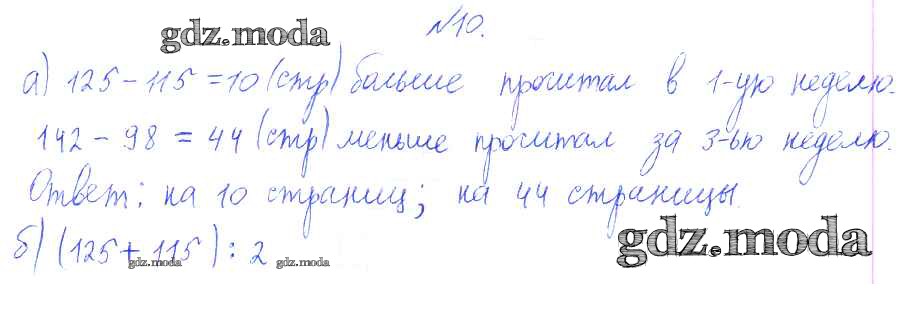 №10.
gdz.moda
а) 125 - 115 = 10 (стр) больше прочитал в 1-ую неделю.
142 - 98 = 44 (стр) меньше прочитал за 3-ью неделю.
Ответ: на 10 страниц; на 44 страницы.
gdz.moda
б) (125 + 115) : 2
gdz.moda gdz.moda